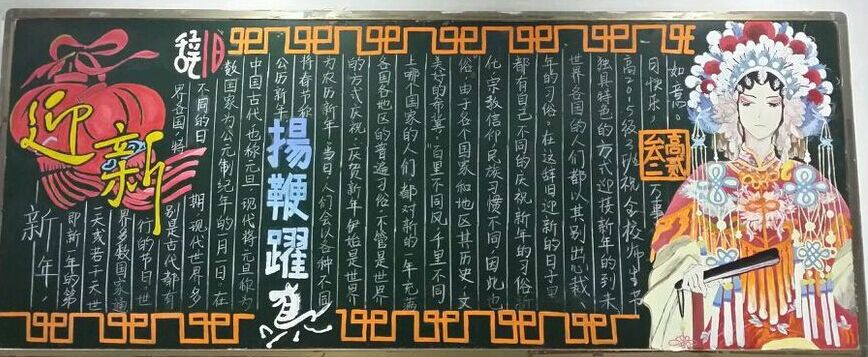 辞旧
迎新
揚鞭躍
新年，
即新一年的第
一天或若干天世
界多数国家通
行的节日世
界各国，特别是古代都有
不同的日期，现代世界多
数国家为公元制纪年的一月一日。在
中国古代也称元旦。现代将元旦称为
公历新年，
将春节称
为农历新年，当日人们会以各种不同
的方式庆祝。庆贺新年伊始是世界
各国各地区的普遍习俗，不管是世界
上哪个国家的人们，都对新的一年充满
美好的希冀。百里不同风，千里不同
俗，由于各个国家和地区其历史、文
化、宗教信仰、民族习惯不同，因此也
都有自己不同的庆祝新年的习俗
年的习俗。在这辞旧迎新的日子里，
世界各国的人们都以其别出心裁、
独具特色的方式迎接新年的到来
高2015级 班祝全校师生节
日快乐，万事
如意。
高貳